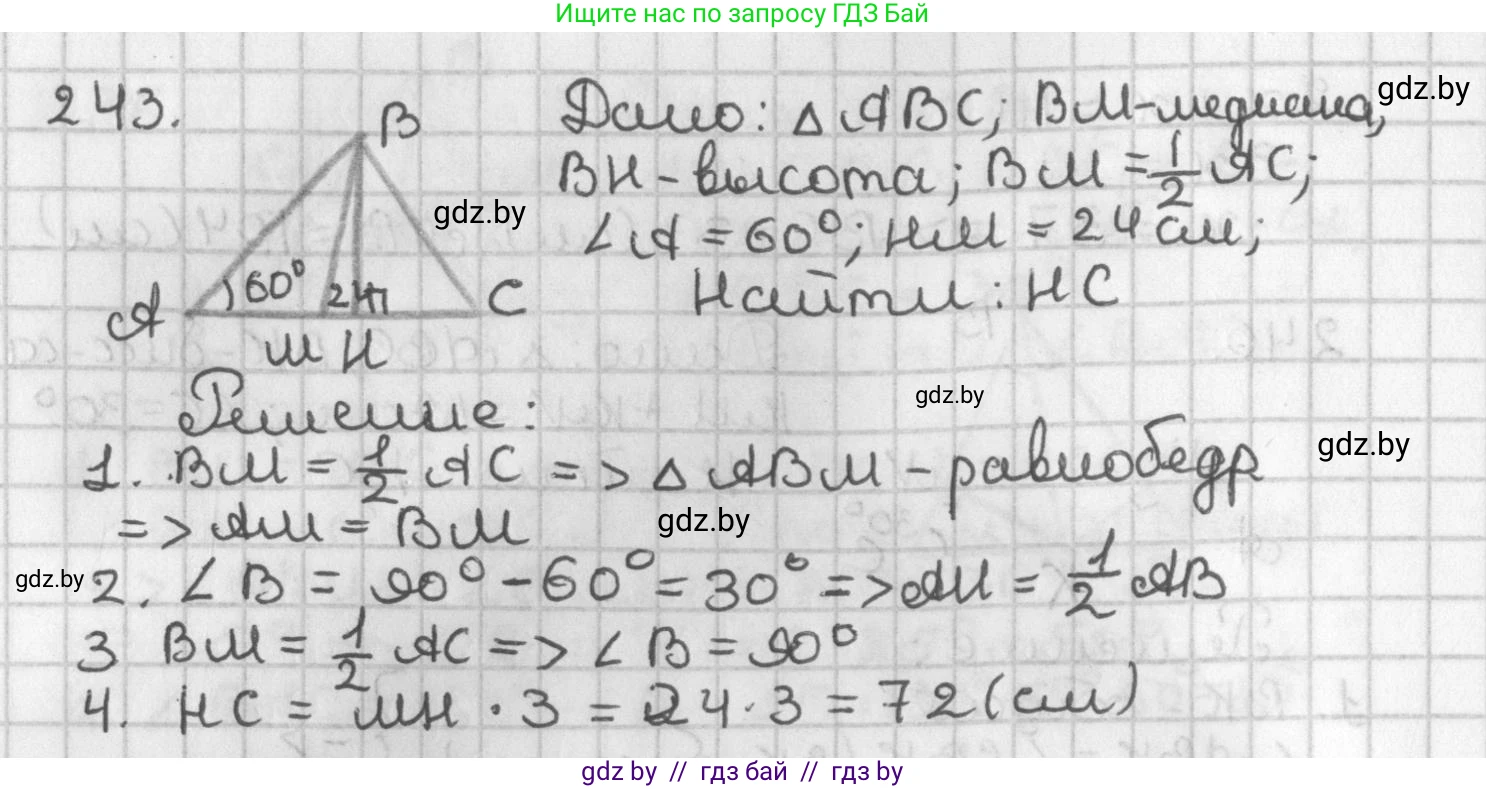 Ищите нас по запросу ГДЗ Бай
243.
B
Дано: △ ABC; BM-медиана,
gdz.by
BH-высота; BM = 1/2 AC;
gdz.by
∠A = 60°; HM = 24 см;
60° 24
A
C
Найти: HC
M H
Решение:
gdz.by
1. BM = 1/2 AC => △ ABM - равнобедр
gdz.by
=> AM = BM
gdz.by
gdz.by
2. ∠B = 90° - 60° = 30° => AH = 1/2 AB
3 BM = 1/2 AC => ∠B = 90°
4. HC = MH · 3 = 24 · 3 = 72 (см)
gdz by // гдз бай // гдз by